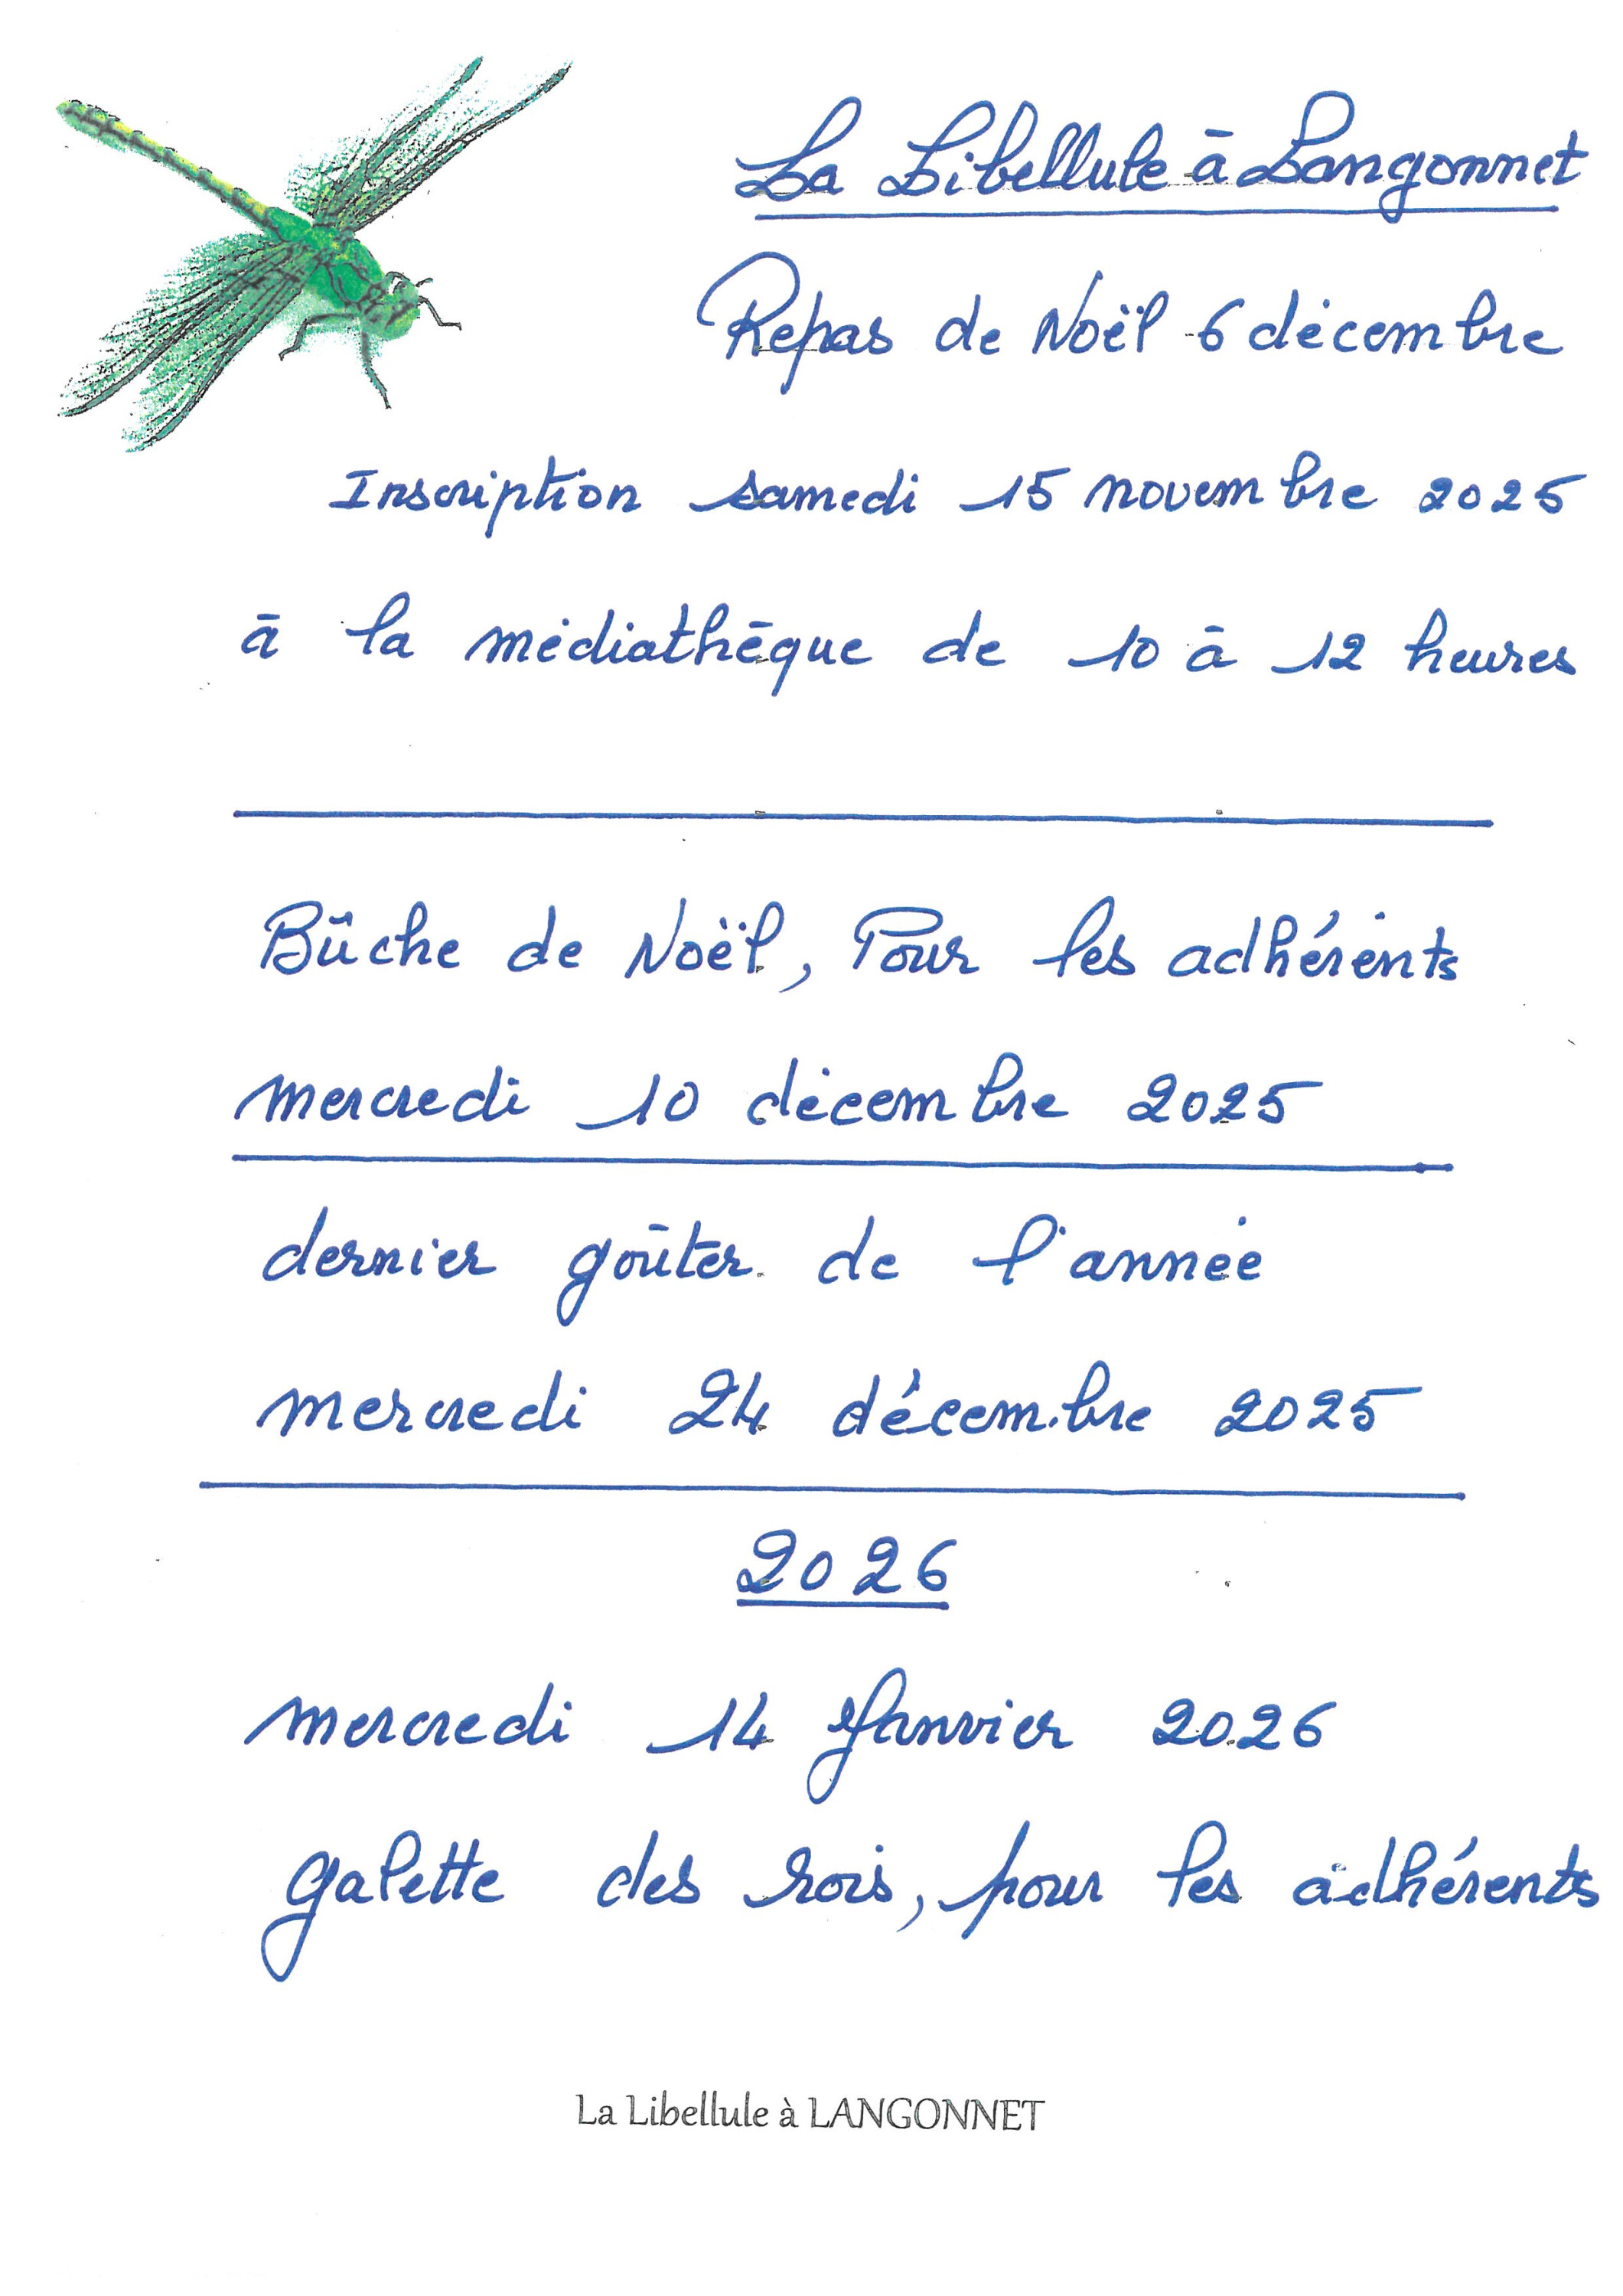 La Libellule à Langonnet
Repas de Noël 6 décembre
Inscription samedi 15 novembre 2025
à la médiathèque de 10 à 12 heures
Bûche de Noël, Pour les adhérents
mercredi 10 décembre 2025
dernier goûter de l'année
mercredi 24 décembre 2025
2026
mercredi 14 Janvier 2026
galette des rois, pour les adhérents
La Libellule à LANGONNET